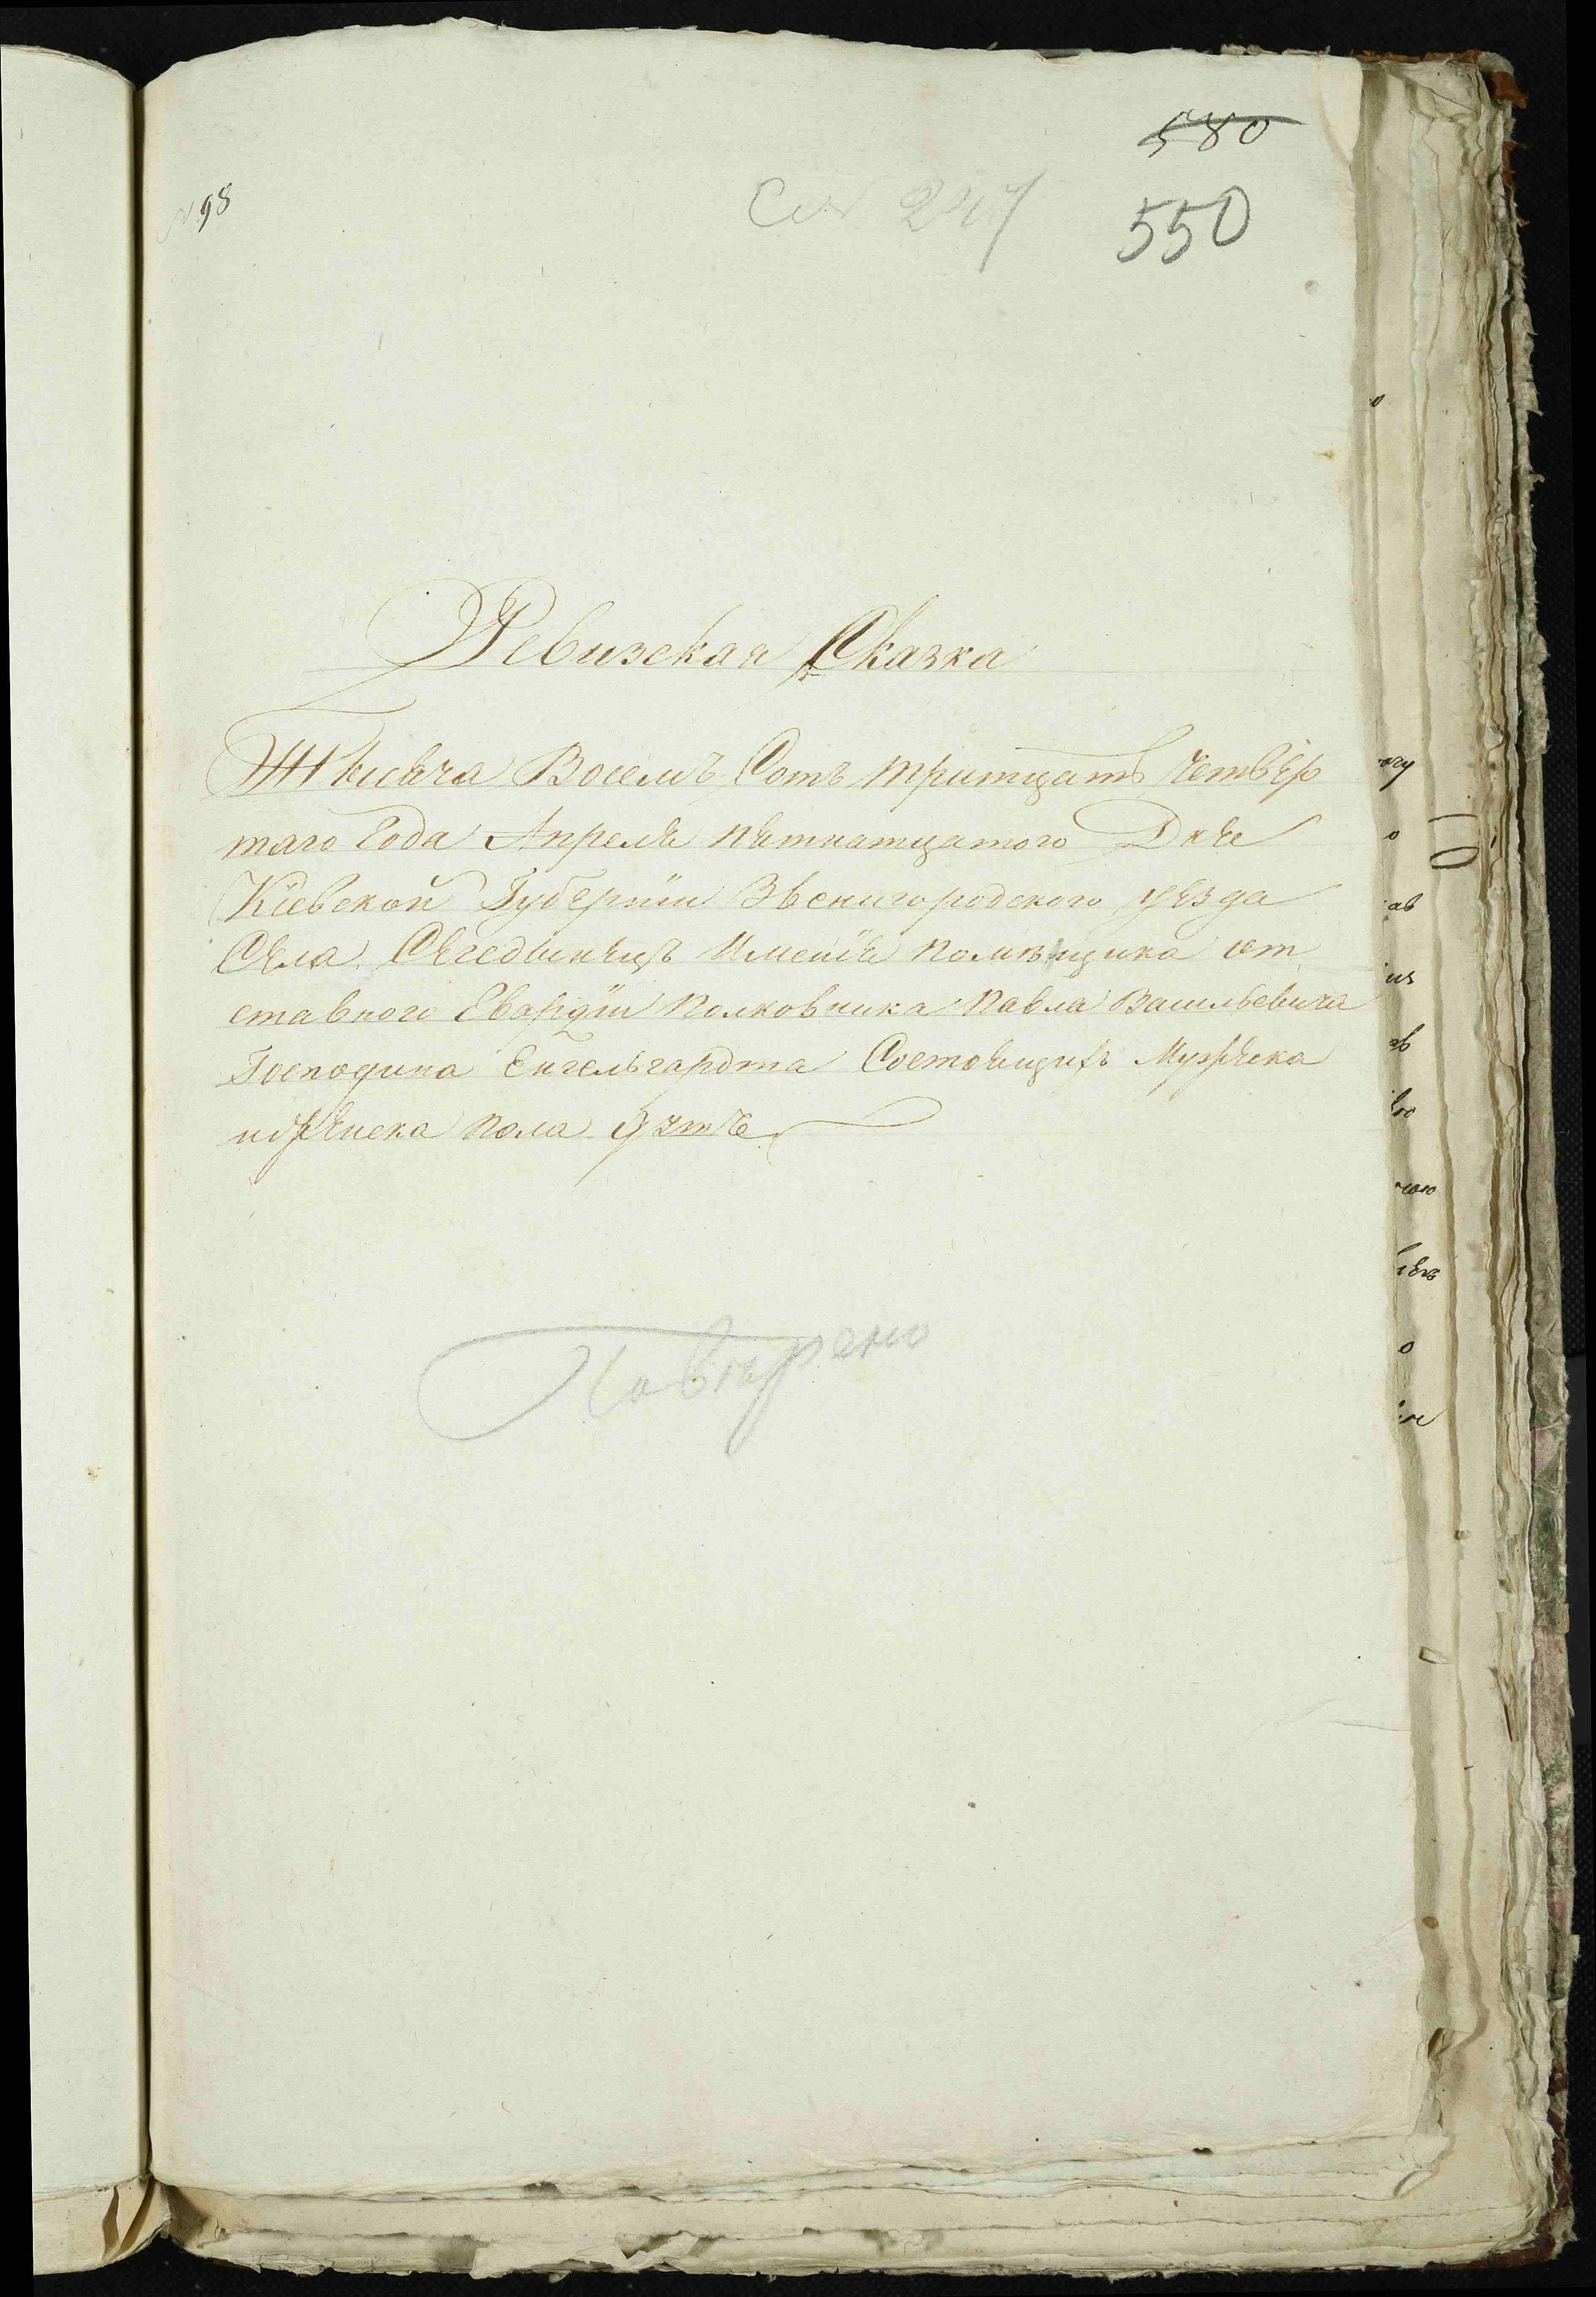 580
550
N 98
Ревизская Сказка
Тысяча Восемъ Сотъ тритцать четвер
таго Года Апреля пятнатцатого Дня
Кіевской Губерніи Звенигородского уезда
Села Сегединецъ Именія помѣщика от
ставного Гвардіи Полковника Павла Васильевича
Господина Енгельгардта Состоящихъ Мужеска
иженска пола
Повѣрено